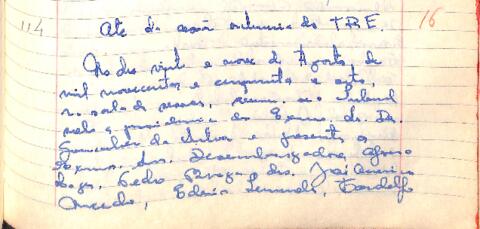 114 Ata da sessão ordinaria do TRE. 16
No dia vinte e nove de Agosto de
mil novecentos e cincoenta e oito,
na sala de sessões, reuniu-se o Tribunal
sob a presidencia do Exmo. Sr. Des.
da Silva e presentes os
Exmos. Srs. Desembargadores
Pedro Braga e drs. José Americo
Macedo, Edesio Fernandes, Gandolfo